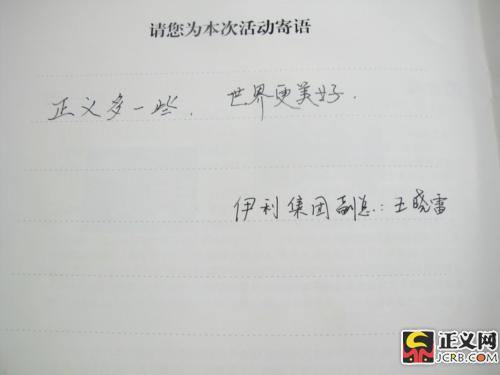 请您为本次活动寄语
正义多一些，世界更美好.
伊利集团副总:王晓雷
正义网
JCRB.COM